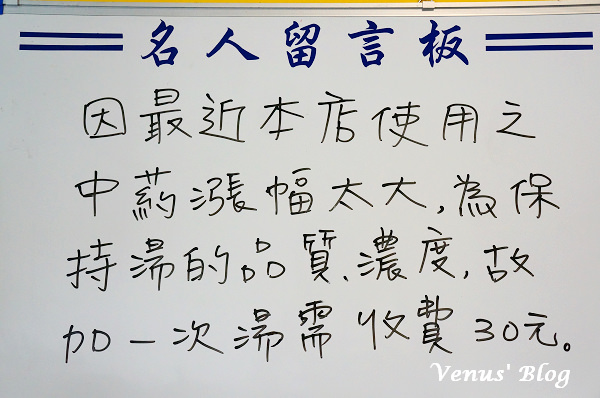 名人留言板
因最近本店使用之
中药漲幅太大,為保
持湯的品質、濃度,故
加一次湯需收費30元。
Venus' Blog